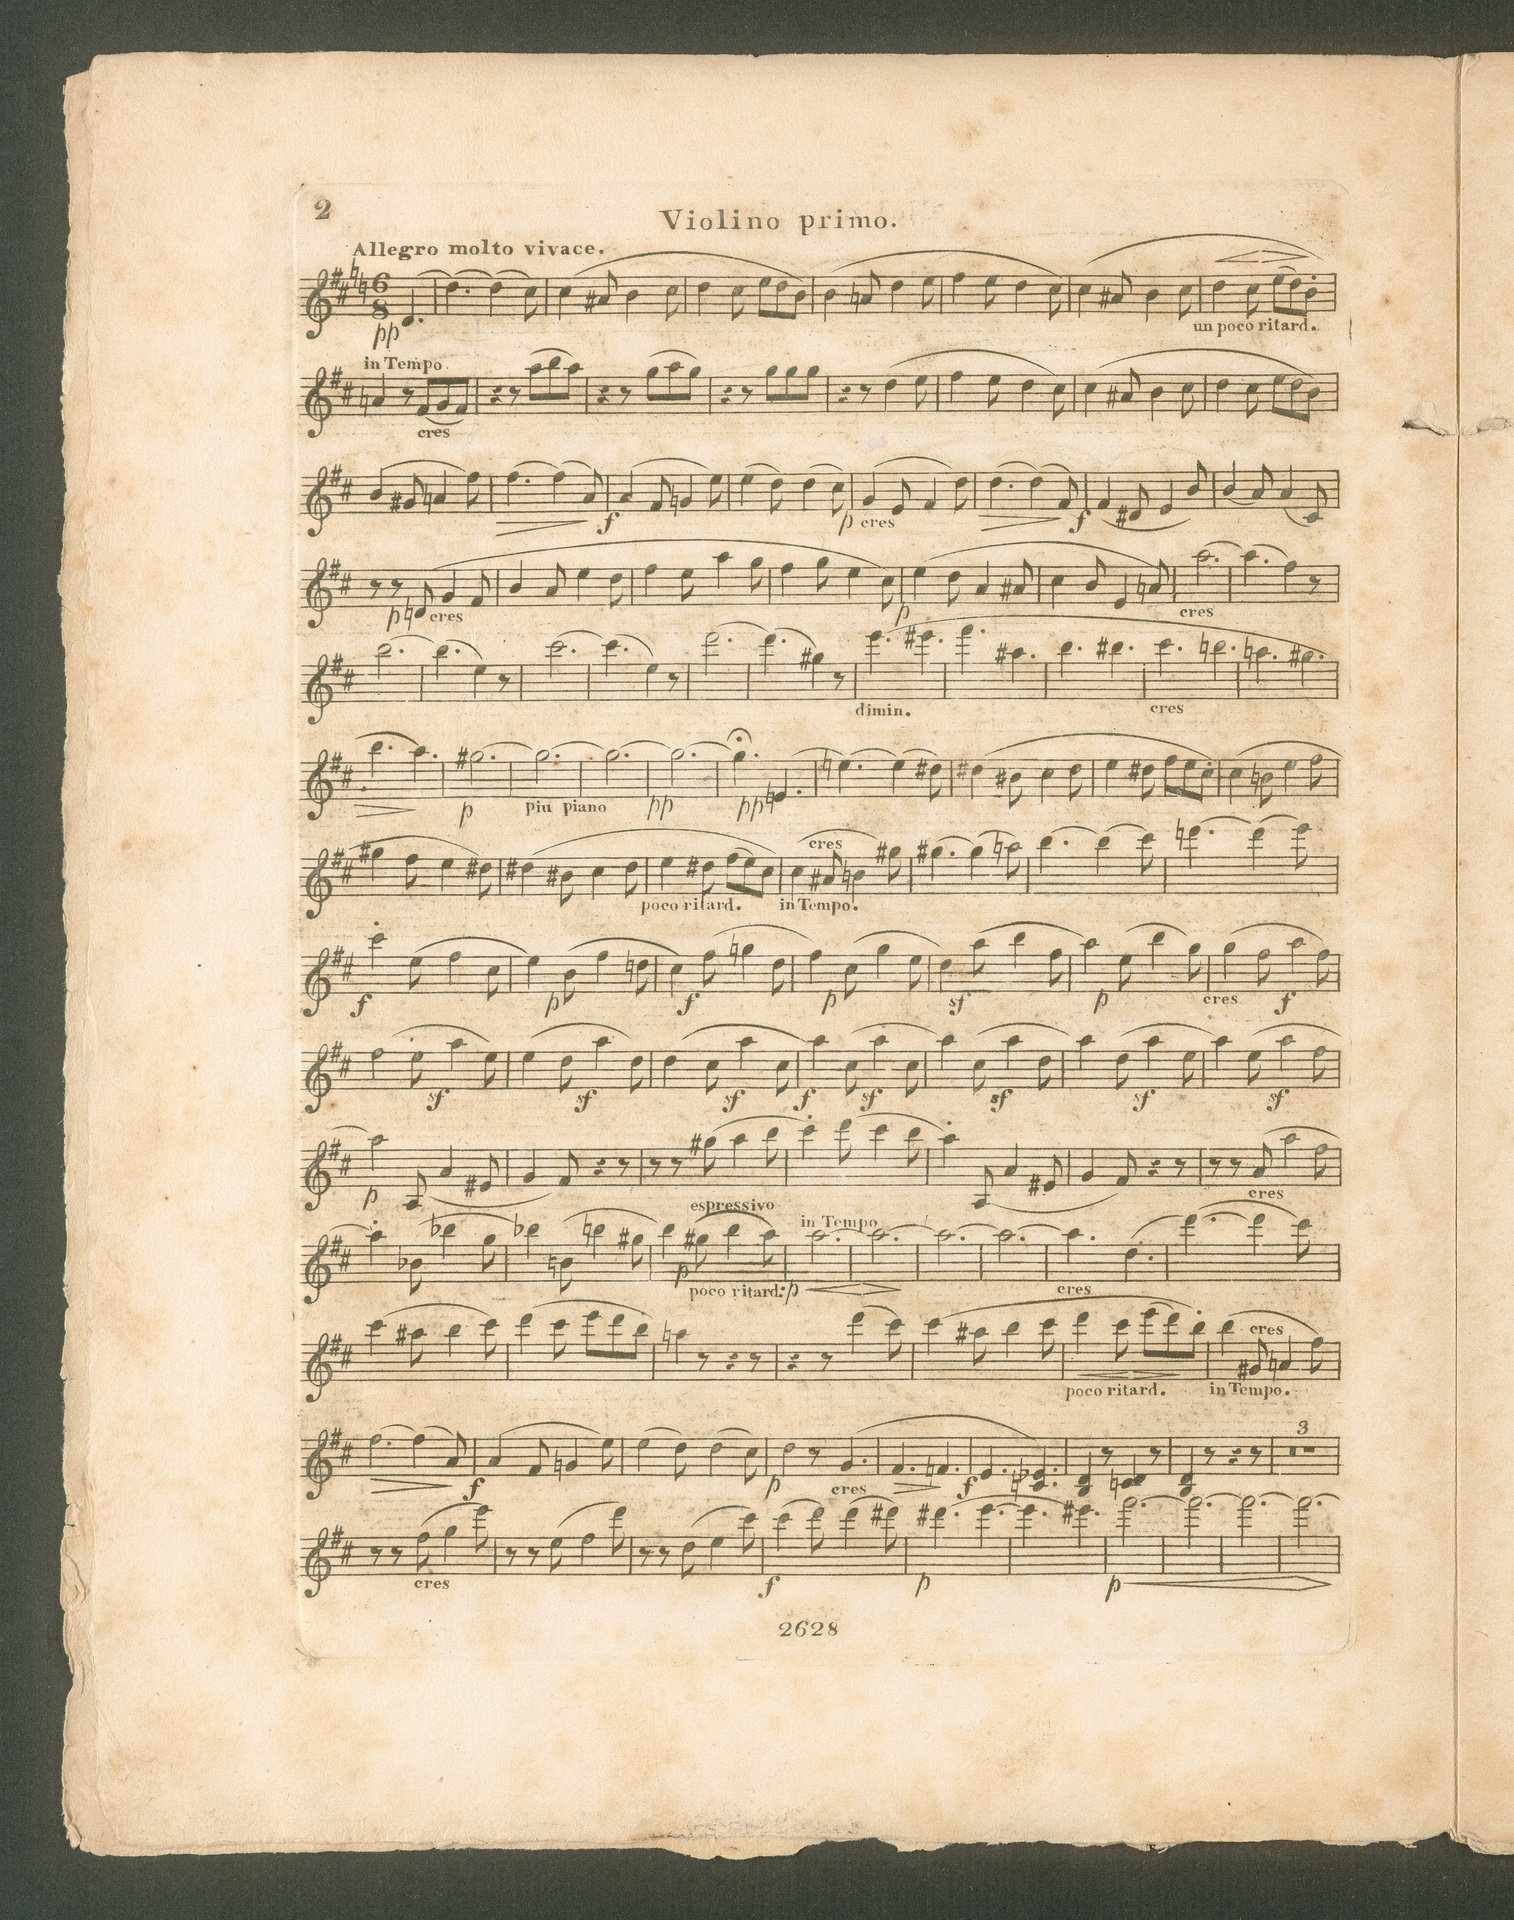 2
Violino primo.
Allegro molto vivace.
6
8
pp
un poco ritard.
in Tempo
cres
f
p cres
f
p cres
p
cres
dimin.
cres
p
piu piano
pp
pp
cres
poco ritard.
in Tempo.
f
p
f
p
sf
p
cres
f
sf
sf
sf
f
sf
sf
sf
sf
p
espressivo
cres
in Tempo
p
poco ritard:
p
cres
cres
poco ritard.
in Tempo.
3
f
p
cres
f
cres
f
p
p
2628